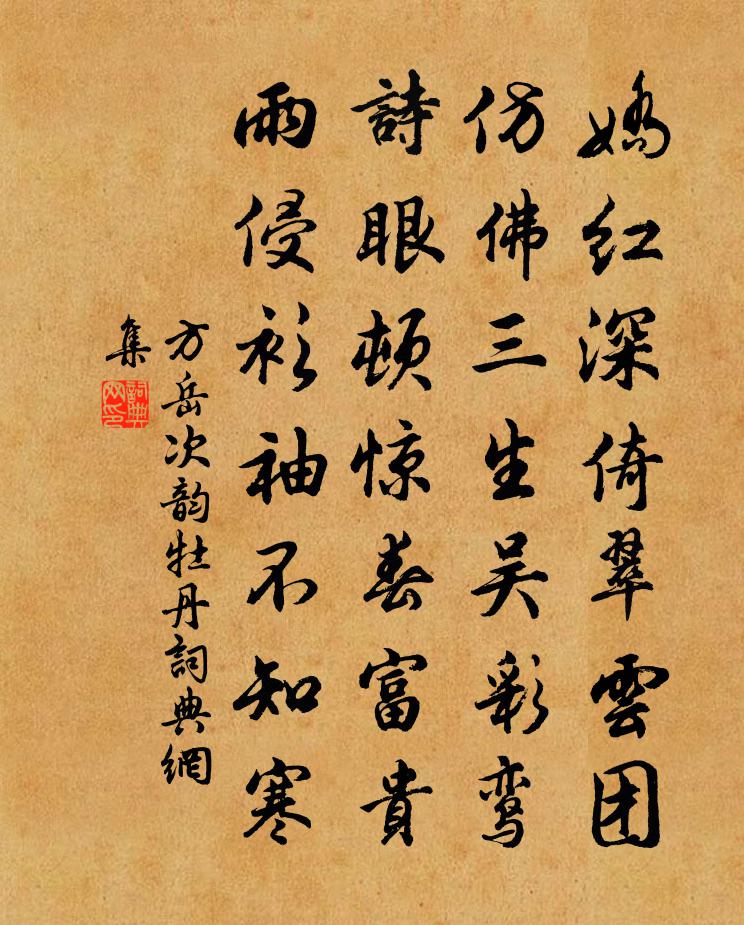 娇红深倚翠雲团
仿佛三生吴彩鸾
詩眼顿惊春富貴
雨侵衫袖不知寒
方岳次韵牡丹詞典網
集
詞典
网印